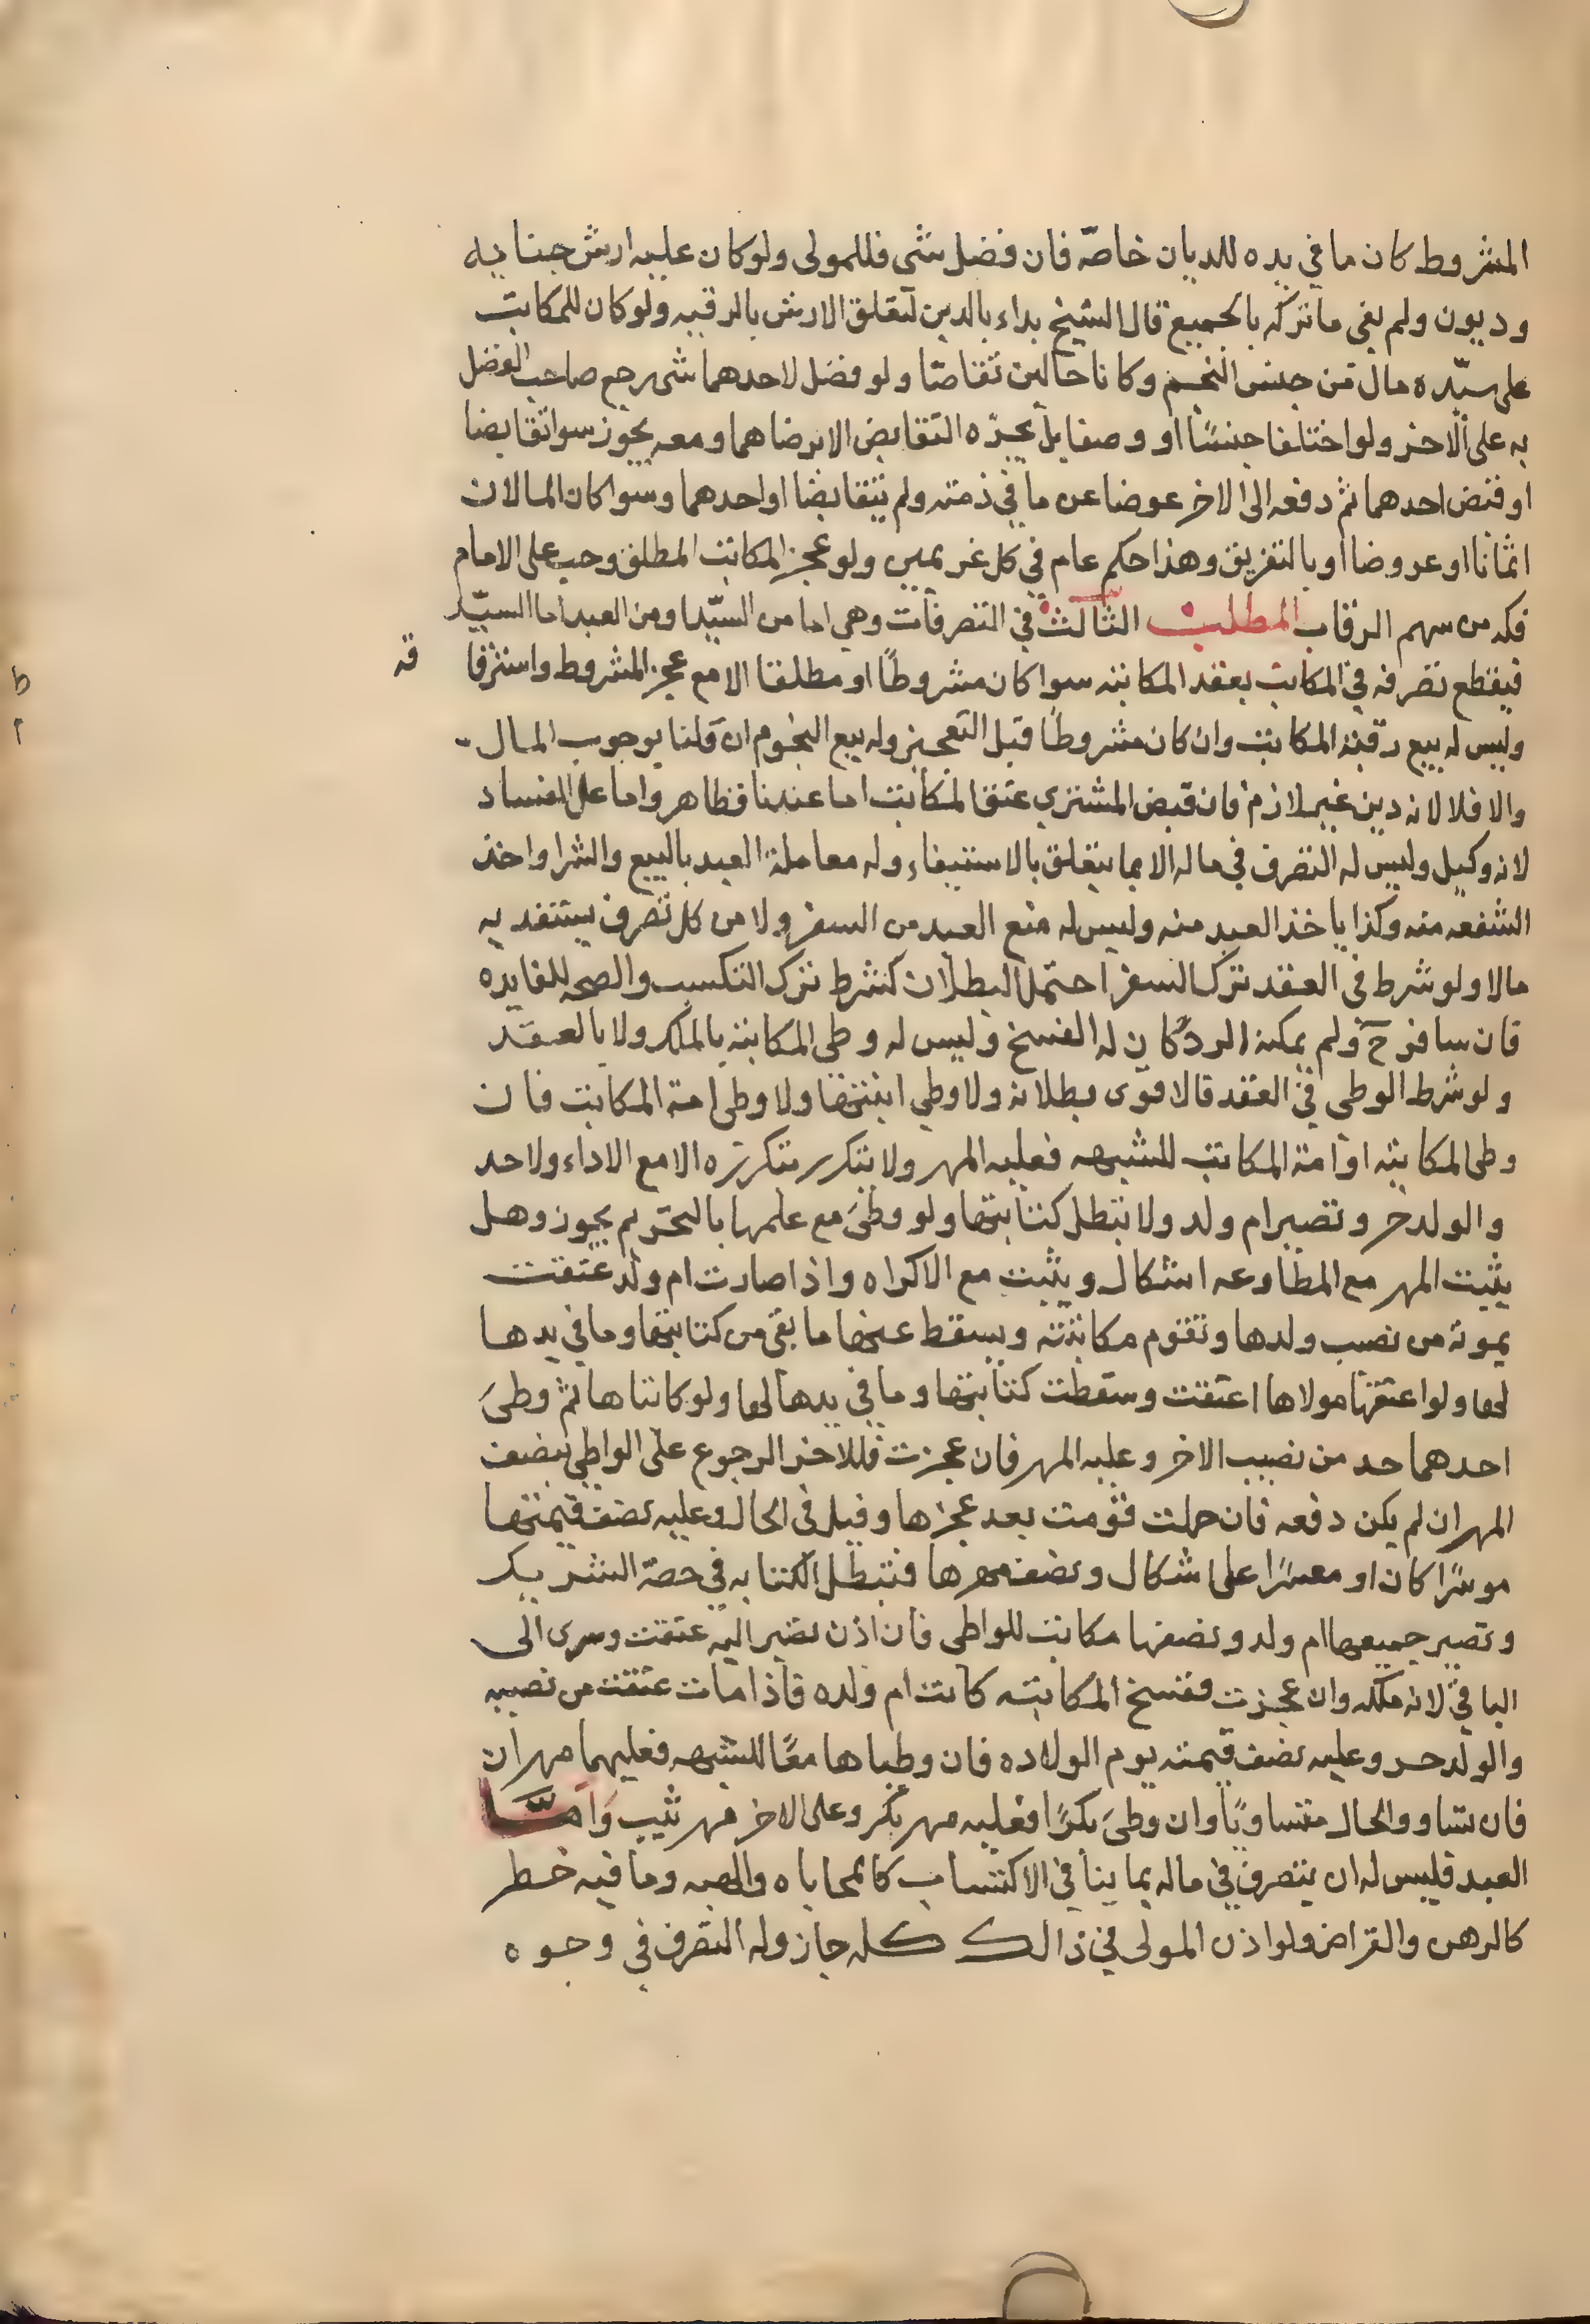 المشروط كان ما في يده للديان خاصّه فان فضل شي فللمولى ولو كان عليه ارش جنايه
وديون ولم يفى ما تركه بالجميع قال الشيخ بداء بالدين لتعلق الارش بالرقبه ولو كان للمكاتب
على سيّده مال من جنس النجم وكانا حالين تقاصّا ولو فضل لاحدهما شى رجع صاحب الفضل
به على الاخر ولو اختلفا جنسًا او وصفا التقابض الا برضاهما ومعه يجوز سوا تقابضا
او قبض احدهما ثم دفعه الى الاخر عوضا عن ما في ذمته ولم يتقابضا او احدهما وسوا كان المالان
اثمانا او عروضا او بالتفريق وهذا حكم عام في كل غريمين ولو عجز المكاتب المطلق وجب على الامام
فكه من سهم الرقاب المطلب الثالث في التصرفات وهي اما من السيّد او من العبد اما السيّد
فيقطع تصرفه في المكاتب بعقد المكاتبه سوا كان مشروطًا او مطلقا الا مع عجز المشروط واسترقا
قه
وليس له بيع رقبة المكاتب وان كان مشروطًا قبل التعجيز وله بيع النجوم ان قلنا بوجوب المال
والا فلا لانه دين غير لازم فان قبض المشتري عتق المكاتب اما عندنا فظاهر واما على الفساد
لانه وكيل وليس له التصرف في ماله الا بما يتعلق بالاستيفاء وله معاملة العبد بالبيع والشرا واخذ
الشفعه منه وكذا ياخذ العبد منه وليس له منع العبد من السفر ولا من كل تصرف يستفد به
مالا ولو شرط في العقد ترك السفر احتمل البطلان كشرط ترك التكسب والصحه للفايده
فان سافر ح ولم يمكنه الرد كان له الفسخ وليس له وطى المكاتبه بالملك ولا بالعقد
ولو شرط الوطى في العقد فالاقوى بطلانه ولا وطي ابنتها ولا وطى امة المكاتب فان
وطى المكاتبه او امة المكاتب للشبهه فعليه المهر ولا يتكرر بتكرره الا مع الاداء ولا حد
والولد حر وتصير ام ولد ولا تبطل كتابتها ولو وطئ مع علمها بالتحريم يجوز وهل
يثبت المهر مع المطاوعه اشكال ويثبت مع الاكراه واذا صارت ام ولد عتقت
بموته من نصيب ولدها وتقوم مكاتبته ويسقط عنها ما بقى من كتابتها وما في يدها
لها ولو اعتقها مولاها اعتقت وسقطت كتابتها وما في يدها لها ولو كاتباها ثم وطئ
احدهما حد من نصيب الاخر وعليه المهر فان عجزت فللاخر الرجوع على الواطي بنصف
المهر ان لم يكن دفعه فان حملت قومت بعد عجزها وقيل في الحال وعليه نصف قيمتها
موسرًا كان او معسرًا على اشكال ونصف مهرها فتبطل الكتابه في حصة الشريك
وتصير جميعها ام ولد ونصفها مكاتب للواطى فان اذن نصير اليه عتقت وسرى الى
الباقي لانه ملكه وان عجزت ففسخ المكاتبه كانت ام ولده فاذا مات عتقت من نصيبه
والولد حر وعليه نصف قيمته يوم الولاده فان وطباها معًا للشبهه فعليهما مهران
فان تساو والحال متساويًا وان وطئ بكرًا فعليه مهر بكر وعلى الاخر مهر ثيب وامّا
العبد فليس له ان يتصرف في ماله بما ينافي الاكتساب كالمحاباه والهبه وما فيه خطر
كالرهن والقراض ولو اذن المولى في ذالك كله جاز وله التصرف في وجوه